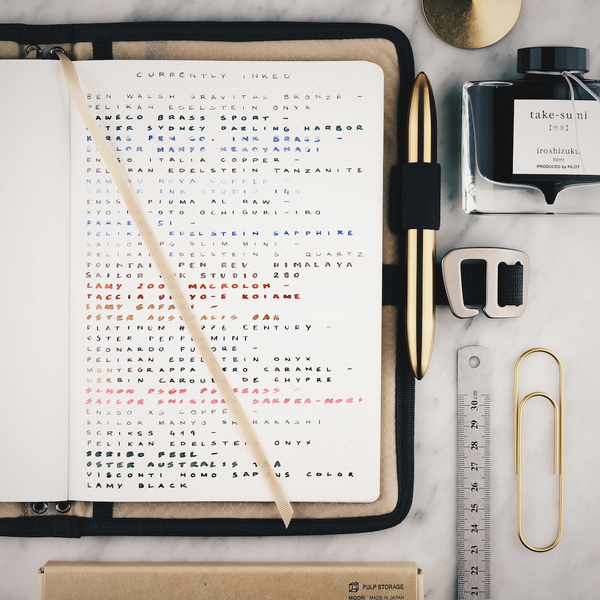 CURRENTLY INKED
BEN WALSH GRAVITAS BRONZE -
PELIKAN EDELSTEIN ONYX
KAWECO BRASS SPORT -
OSTER SYDNEY DARLING HARBOR
KARAS PEN CO. INK BRASS -
SAILOR MANYO NEKOYANAGI
ENSSO ITALIA COPPER -
PELIKAN EDELSTEIN TANZANITE
NAMISU NOVA COPPER -
SAILOR INK STUDIO 143
ENSSO PIUMA AL RAW -
KYO-NO-OTO OCHIGURI-IRO
PARKER 51 -
PELIKAN EDELSTEIN SAPPHIRE
SAILOR PG SLIM MINI -
PELIKAN EDELSTEIN S. QUARTZ
FOUNTAIN PEN REV. HIMALAYA
SAILOR INK STUDIO 280
LAMY 2000 MACROLON -
TACCIA UKIYO-E KOIAME
LAMY SAFARI -
OSTER AUSTRALIS OAK
PLATINUM #3776 CENTURY -
OSTER PEPPERMINT
LEONARDO FURORE -
PELIKAN EDELSTEIN ONYX
MONTEGRAPPA ZERO CARAMEL -
HERBIN CAROUBE DE CHYPRE
SAILOR SHIKIORI SAKURA-MORI
ENSSO XS COPPER -
SAILOR MANYO SHIRAKASHI
SCRIKSS 419 -
PELIKAN EDELSTEIN ONYX
SCRIBO FEEL -
OSTER AUSTRALIS TEA
VISCONTI HOMO SAPIENS COLOR
LAMY BLACK
take-sumi
【竹炭】
iroshizuku
50ml
PRODUCED by PILOT
30 cm
29
28
27
26
25
24
23
22
21
PULP STORAGE
MIDORI MADE IN JAPAN